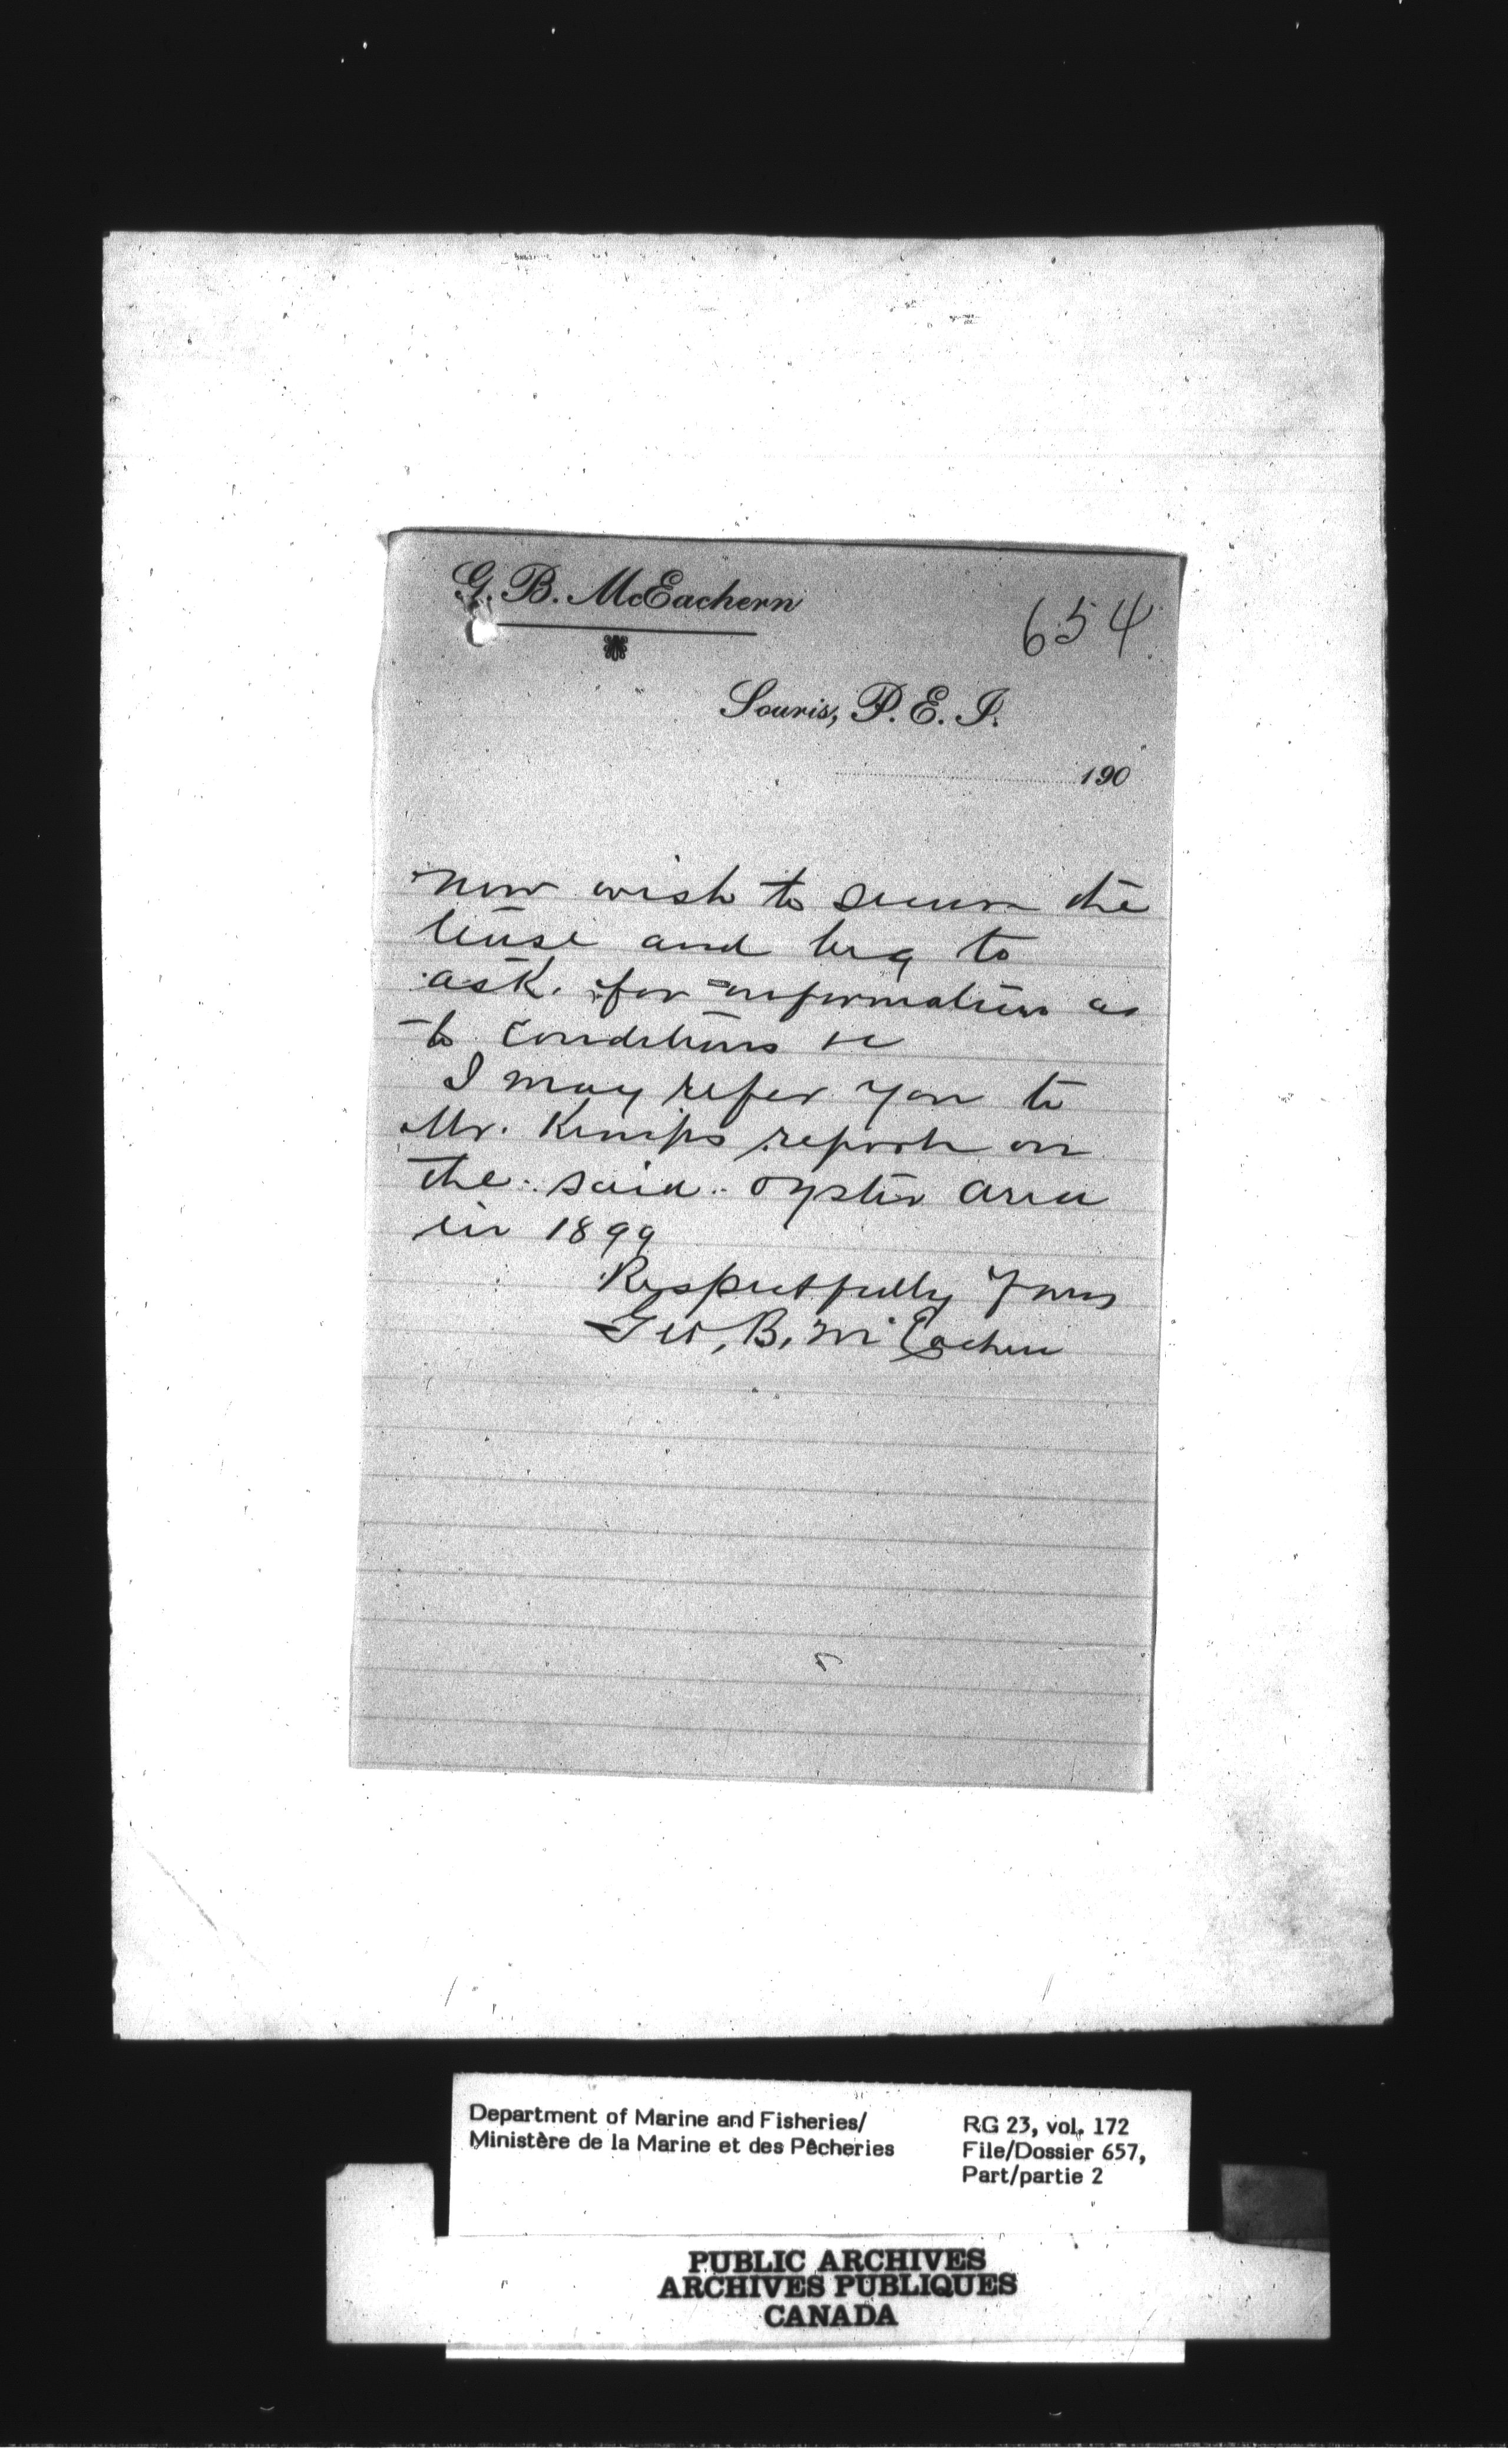 G. B. McEachern
654
Souris, P. E. I.
190
now wish to secure the
lease and beg to
ask for information as
to conditions &c
I may refer you to
Mr. Kemps report on
the said oyster area
in 1899
Respectfully Yours
Geo. B. McEachern
Department of Marine and Fisheries/
Ministère de la Marine et des Pêcheries
RG 23, vol. 172
File/Dossier 657,
Part/partie 2
PUBLIC ARCHIVES
ARCHIVES PUBLIQUES
CANADA